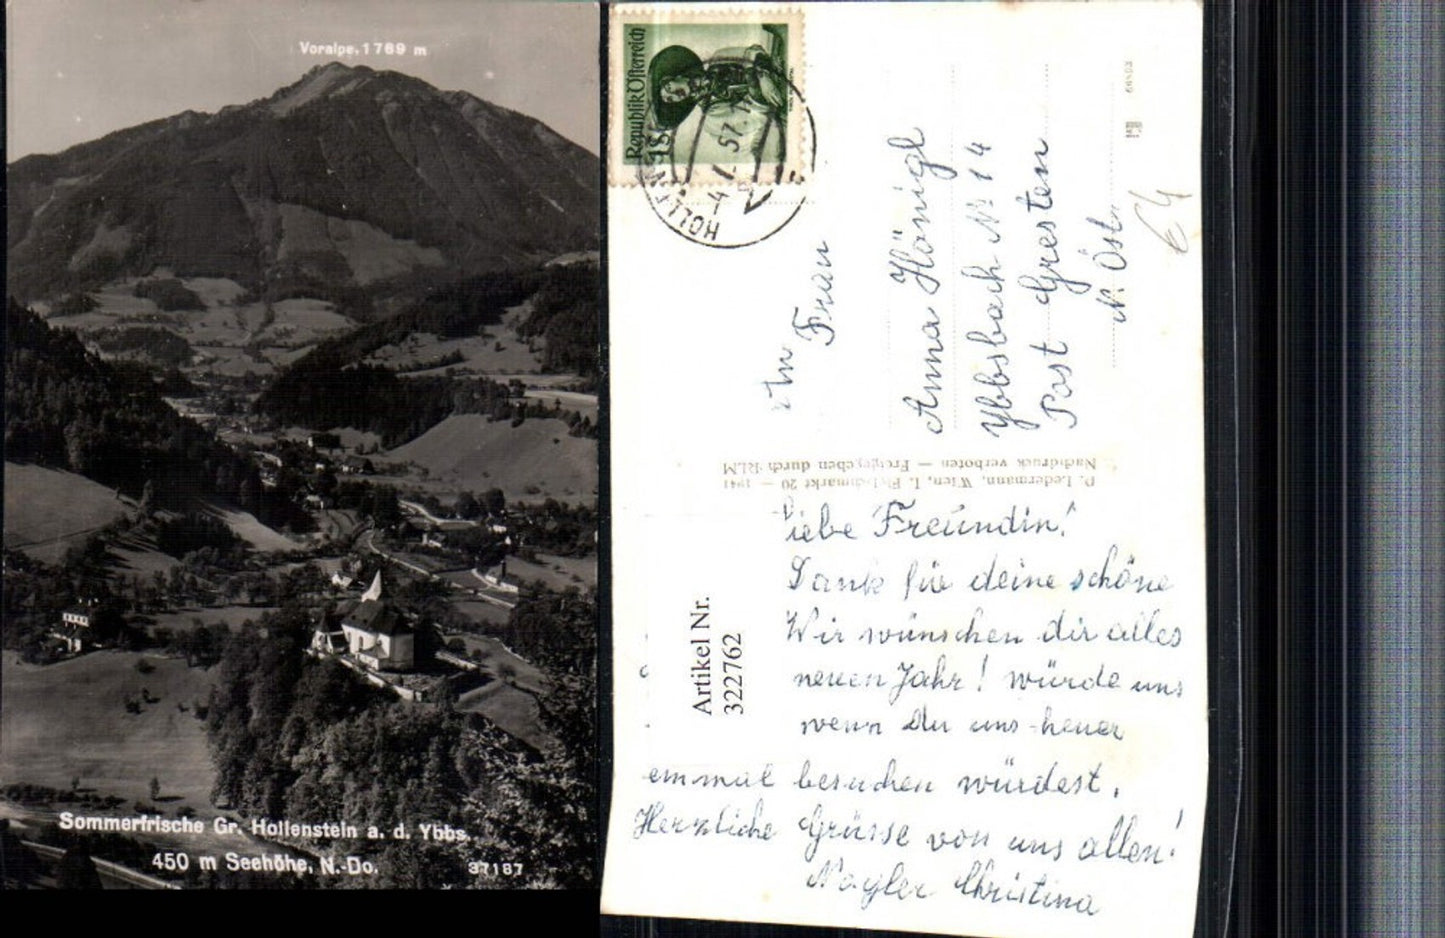 Voralpe, 1769 m
Sommerfrische Gr. Hollenstein a. d. Ybbs,
450 m Seehöhe, N.-Do.
37187
Republik Österreich
HOLLEN
4. 57.
An
Frau
Anna Hönigl
Ybbsbach Nr 14
Post Gresten
N. Öst.
€4
P. Ledermann, Wien, I. Fleischmarkt 20 — 1941
Nachdruck verboten — Freigegeben durch RLM
Artikel Nr.
322762
liebe Freundin!
Dank für deine schöne
Wir wünschen dir alles
neuen Jahr! würde uns
wenn Du uns heuer
einmal besuchen würdest.
Herzliche Grüsse von uns allen!
Nagler Christina